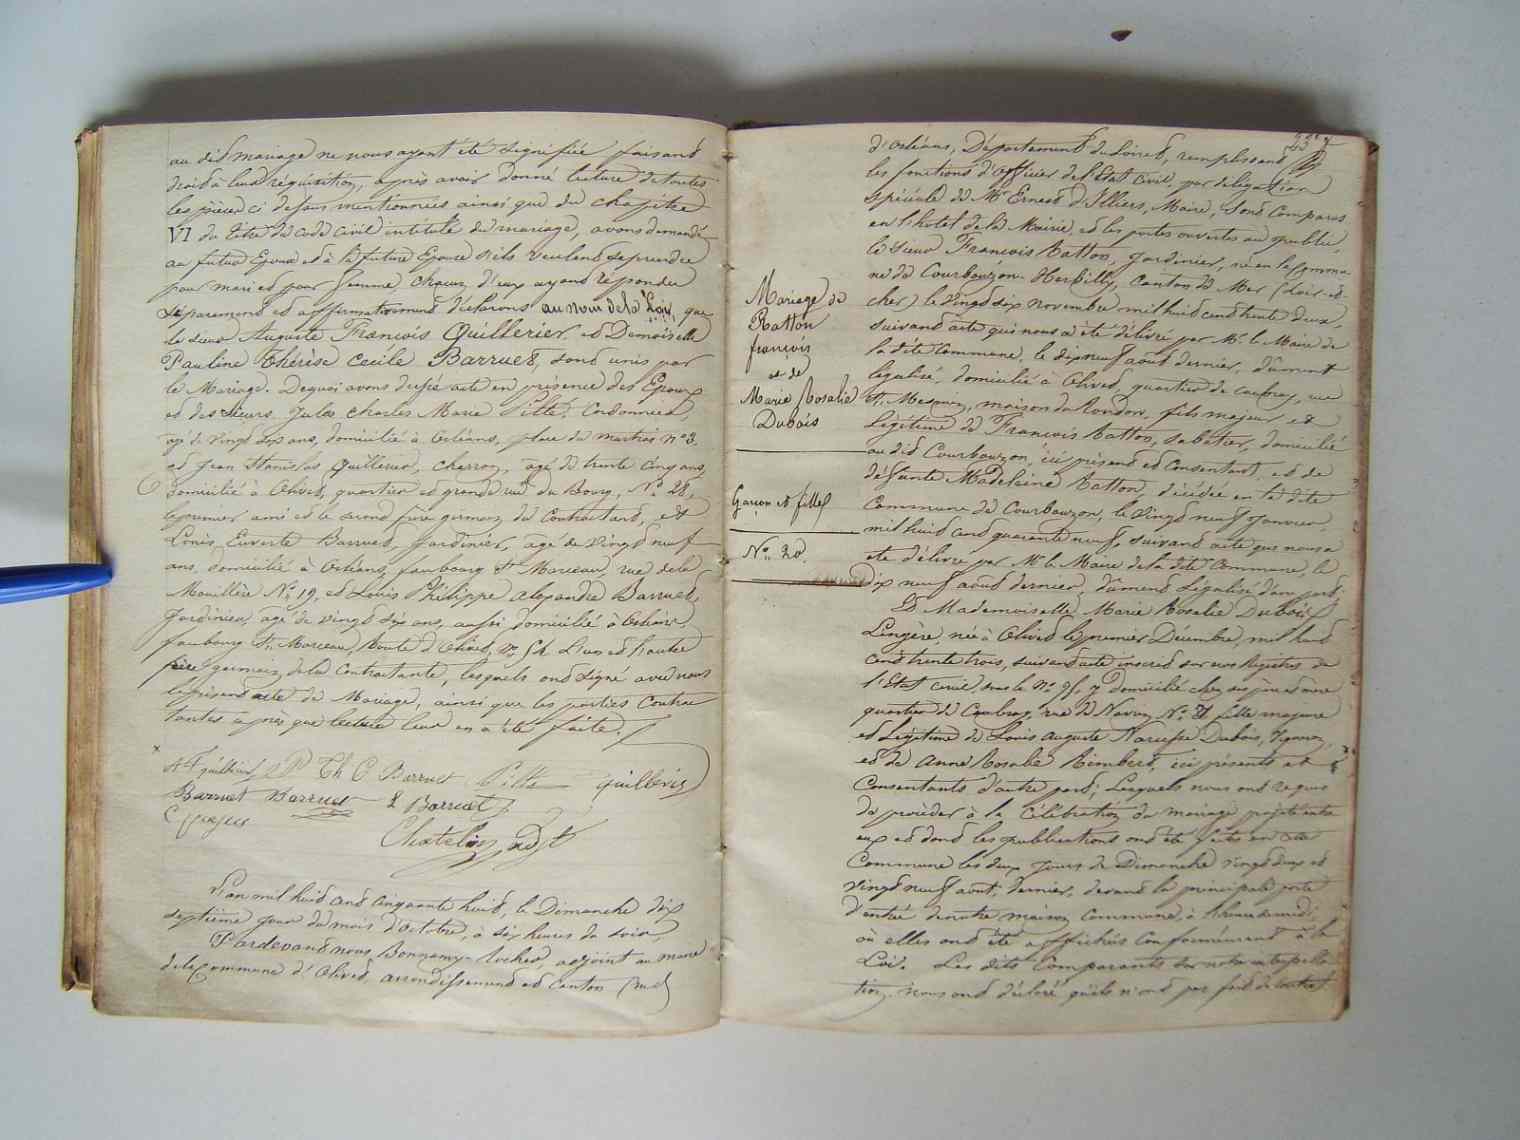 au dit mariage ne nous ayant été signifiée faisant
droit à leur réquisition, après avoir donné lecture de toutes
les pièces ci dessus mentionnées ainsi que du chapitre
VI du titre du code civil intitulé du mariage, avons demandé
au futur Epoux et à la future Epouse s'ils veulent se prendre
pour mari et pour femme chacun d'eux ayant répondu
séparement et affirmativement déclarons au nom de la Loi, que
le sieur Auguste François Quillerier et Demoiselle
Pauline thérèse Cécile Barruet, sont unis par
le Mariage. De quoi avons dressé acte en présence des Epoux
et des sieurs Jules Charles Marie Pitté, Cordonnier,
agé de vingt six ans, domicilié à Orléans, place du martroi no 3,
et Jean Stanislas Quillerier, charron, agé de trente cinq ans,
domicilié à Olivet, quartier et grande rue du Bourg, No 28,
le premier ami et le second frère germain du Contractant, et
Louis Euverte Barruet, Jardinier, agé de vingt neuf
ans, domicilié à Orléans, faubourg St Marceau, rue de la
Mouillère No 19, et Louis Philippe Alexandre Barruet,
Jardinier, agé de vingt six ans, aussi domicilié à Orléans
faubourg St Marceau, Route d'Olivet, no 54 L'un et l'autre
frère germain de la Contractante, lesquels ont signé avec nous
le présent acte de Mariage, ainsi que les parties Contrac
tantes après que lecture leur en a été faite.
P Th C Barruet Pitté quillerier
Barruet Barruet L Barruet
Chatelin adjt
L'an mil huit cent cinquante huit, le Dimanche dix
septième jour du mois d'Octobre, à six heures du soir,
Pardevant nous Bonnamy-Rocher, adjoint au maire
de la Commune d'Olivet, arrondissement et canton sud
d'Orléans, Département du Loiret, remplissant
les fonctions d'officier de l'Etat Civil, par délégation
spéciale de Mr Ernest d'Illiers, Maire, sont comparus
en l'hotel de la Mairie, et les portes ouvertes au public,
le sieur François Ratton, Jardinier, né en la Commu
ne de Courbouzon-Herbilly, Canton de Mer (Loir-et-
cher) le vingt six novembre mil huit cent trente deux,
suivant acte qui nous a été délivré par Mr le Maire de
la dite Commune, le dix neuf aout dernier, dûment
légalisé, domicilié à Olivet, quartier de Caubray, rue
St Mesmin, maison du Rondon, fils majeur et
Légitime de François Ratton, sabotier, domicilié
au dit Courbouzon, ici présent et Consentant et de
défunte Madelaine Ratton, décédée en la dite
Commune de Courbouzon, le vingt neuf Janvier
mil huit cent quarante neuf, suivant acte qui nous a
été délivré par Mr le Maire de la dite Commune, le
dix neuf aout dernier, dument Légalisé d'un part;
Et Mademoiselle Marie Rosalie Dubois
Lingère née à Olivet le premier Décembre, mil huit
cent trente trois, suivant acte inscrit sur nos Registres de
l'Etat civil, sous le No 95, y domicilié chez ses père et mère
quartier de Caubray, rue de Navoy No 71 fille majeure
et Légitime de Louis Auguste Narcisse Dubois, Vigneron,
et de Anne Rosalie Rimbert, ici présents et
Consentants d'autre part; Lesquels nous ont requis
de procéder à la Célébration du mariage projeté entre
eux et dont les publications ont été faites en cette
Commune les deux jours de Dimanche vingt deux et
vingt neuf aout, dernier, devant la principale porte
d'entrée de notre maison commune, à l'heure de midi,
où elles ont été affichés Conformément à la
Loi. Les dits Comparants sur notre interpella
tion, nous ont déclaré qu'ils n'ont pas fait de contrat
Mariage de
Ratton
françois
et de
Marie Rosalie
Dubois
Garçon et fille
No 20.